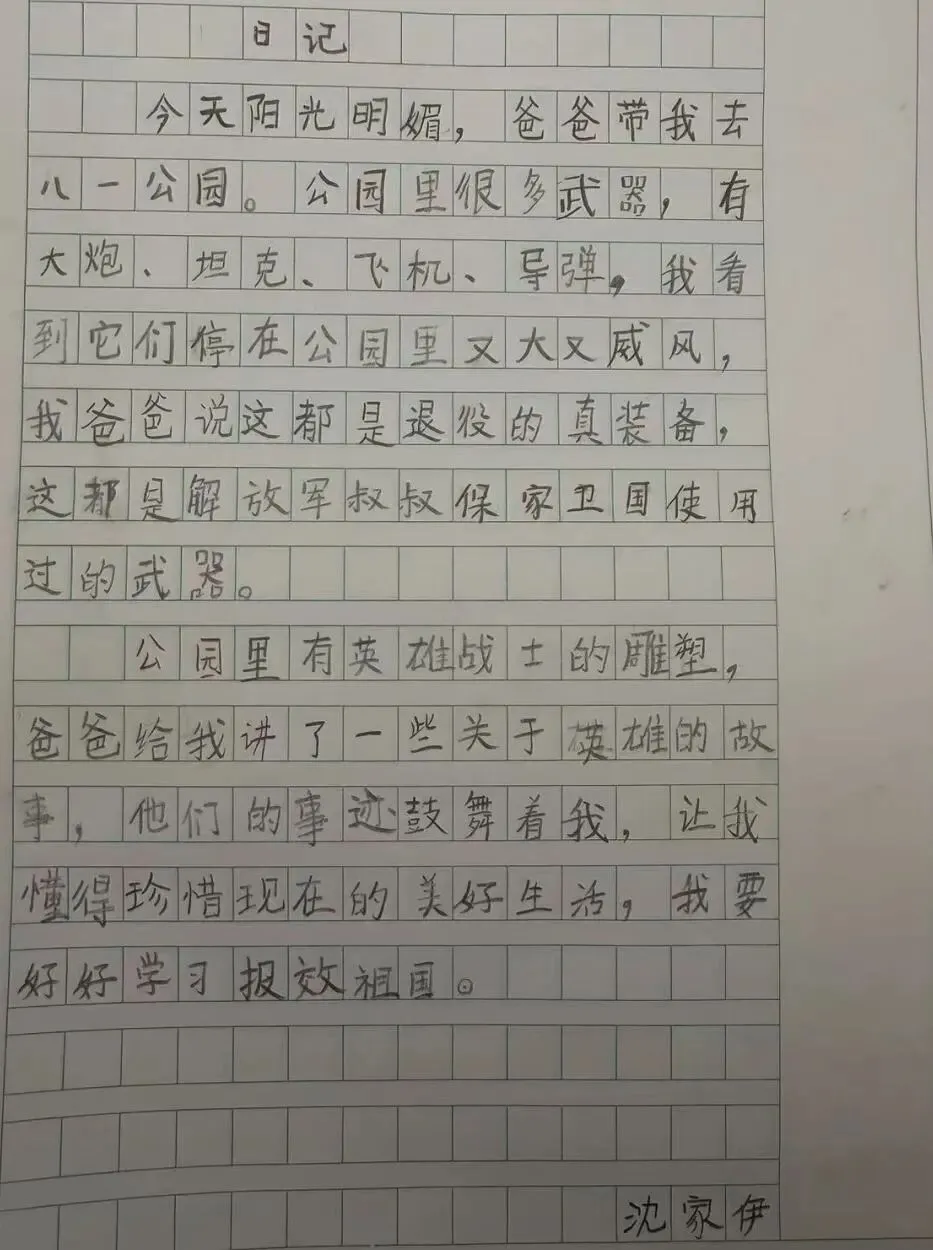 日记
今天阳光明媚，爸爸带我去
八一公园。公园里很多武器，有
大炮、坦克、飞机、导弹，我看
到它们停在公园里又大又威风，
我爸爸说这都是退役的真装备，
这都是解放军叔叔保家卫国使用
过的武器。
公园里有英雄战士的雕塑，
爸爸给我讲了一些关于英雄的故
事，他们的事迹鼓舞着我，让我
懂得珍惜现在的美好生活，我要
好好学习报效祖国。
沈家伊